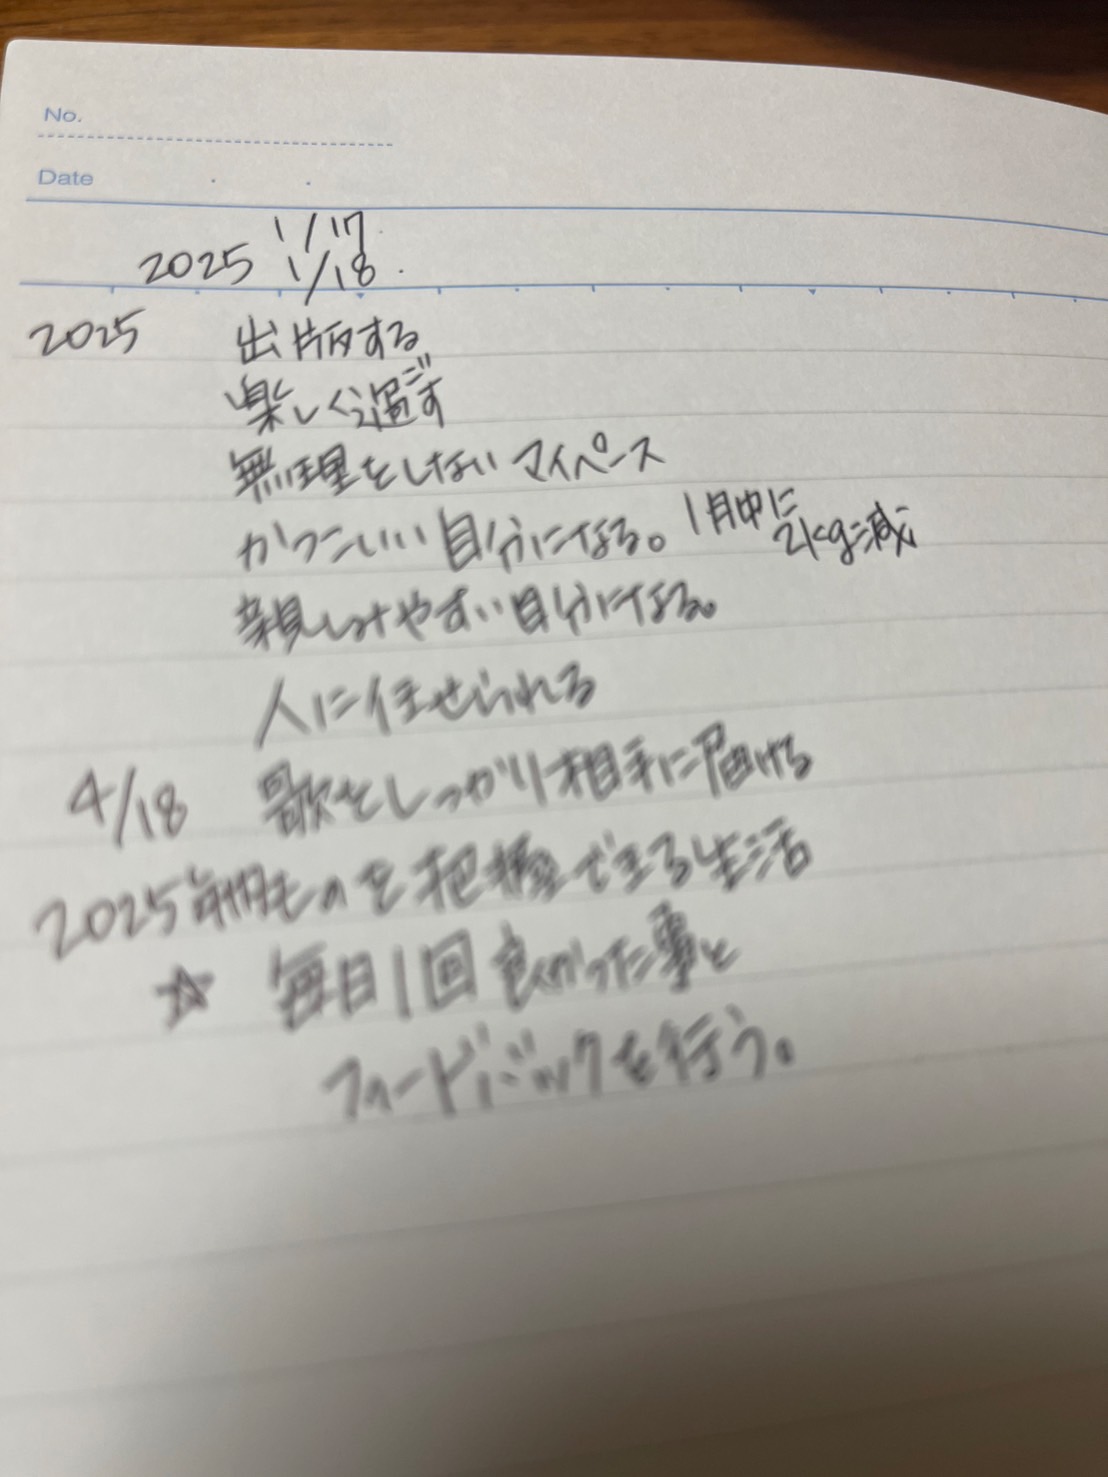 No.
Date
1/17
2025 1/18.
2025 出版する
楽しく過ごす
無理をしない マイペース
かっこいい自分になる。1月中に
2kg減
親しみやすい自分になる。
人に任せられる
4/18 歌をしっかり相手に届ける
2025年 ものを把握できる生活
☆ 毎日1回 良かった事と
フィードバックを行う。